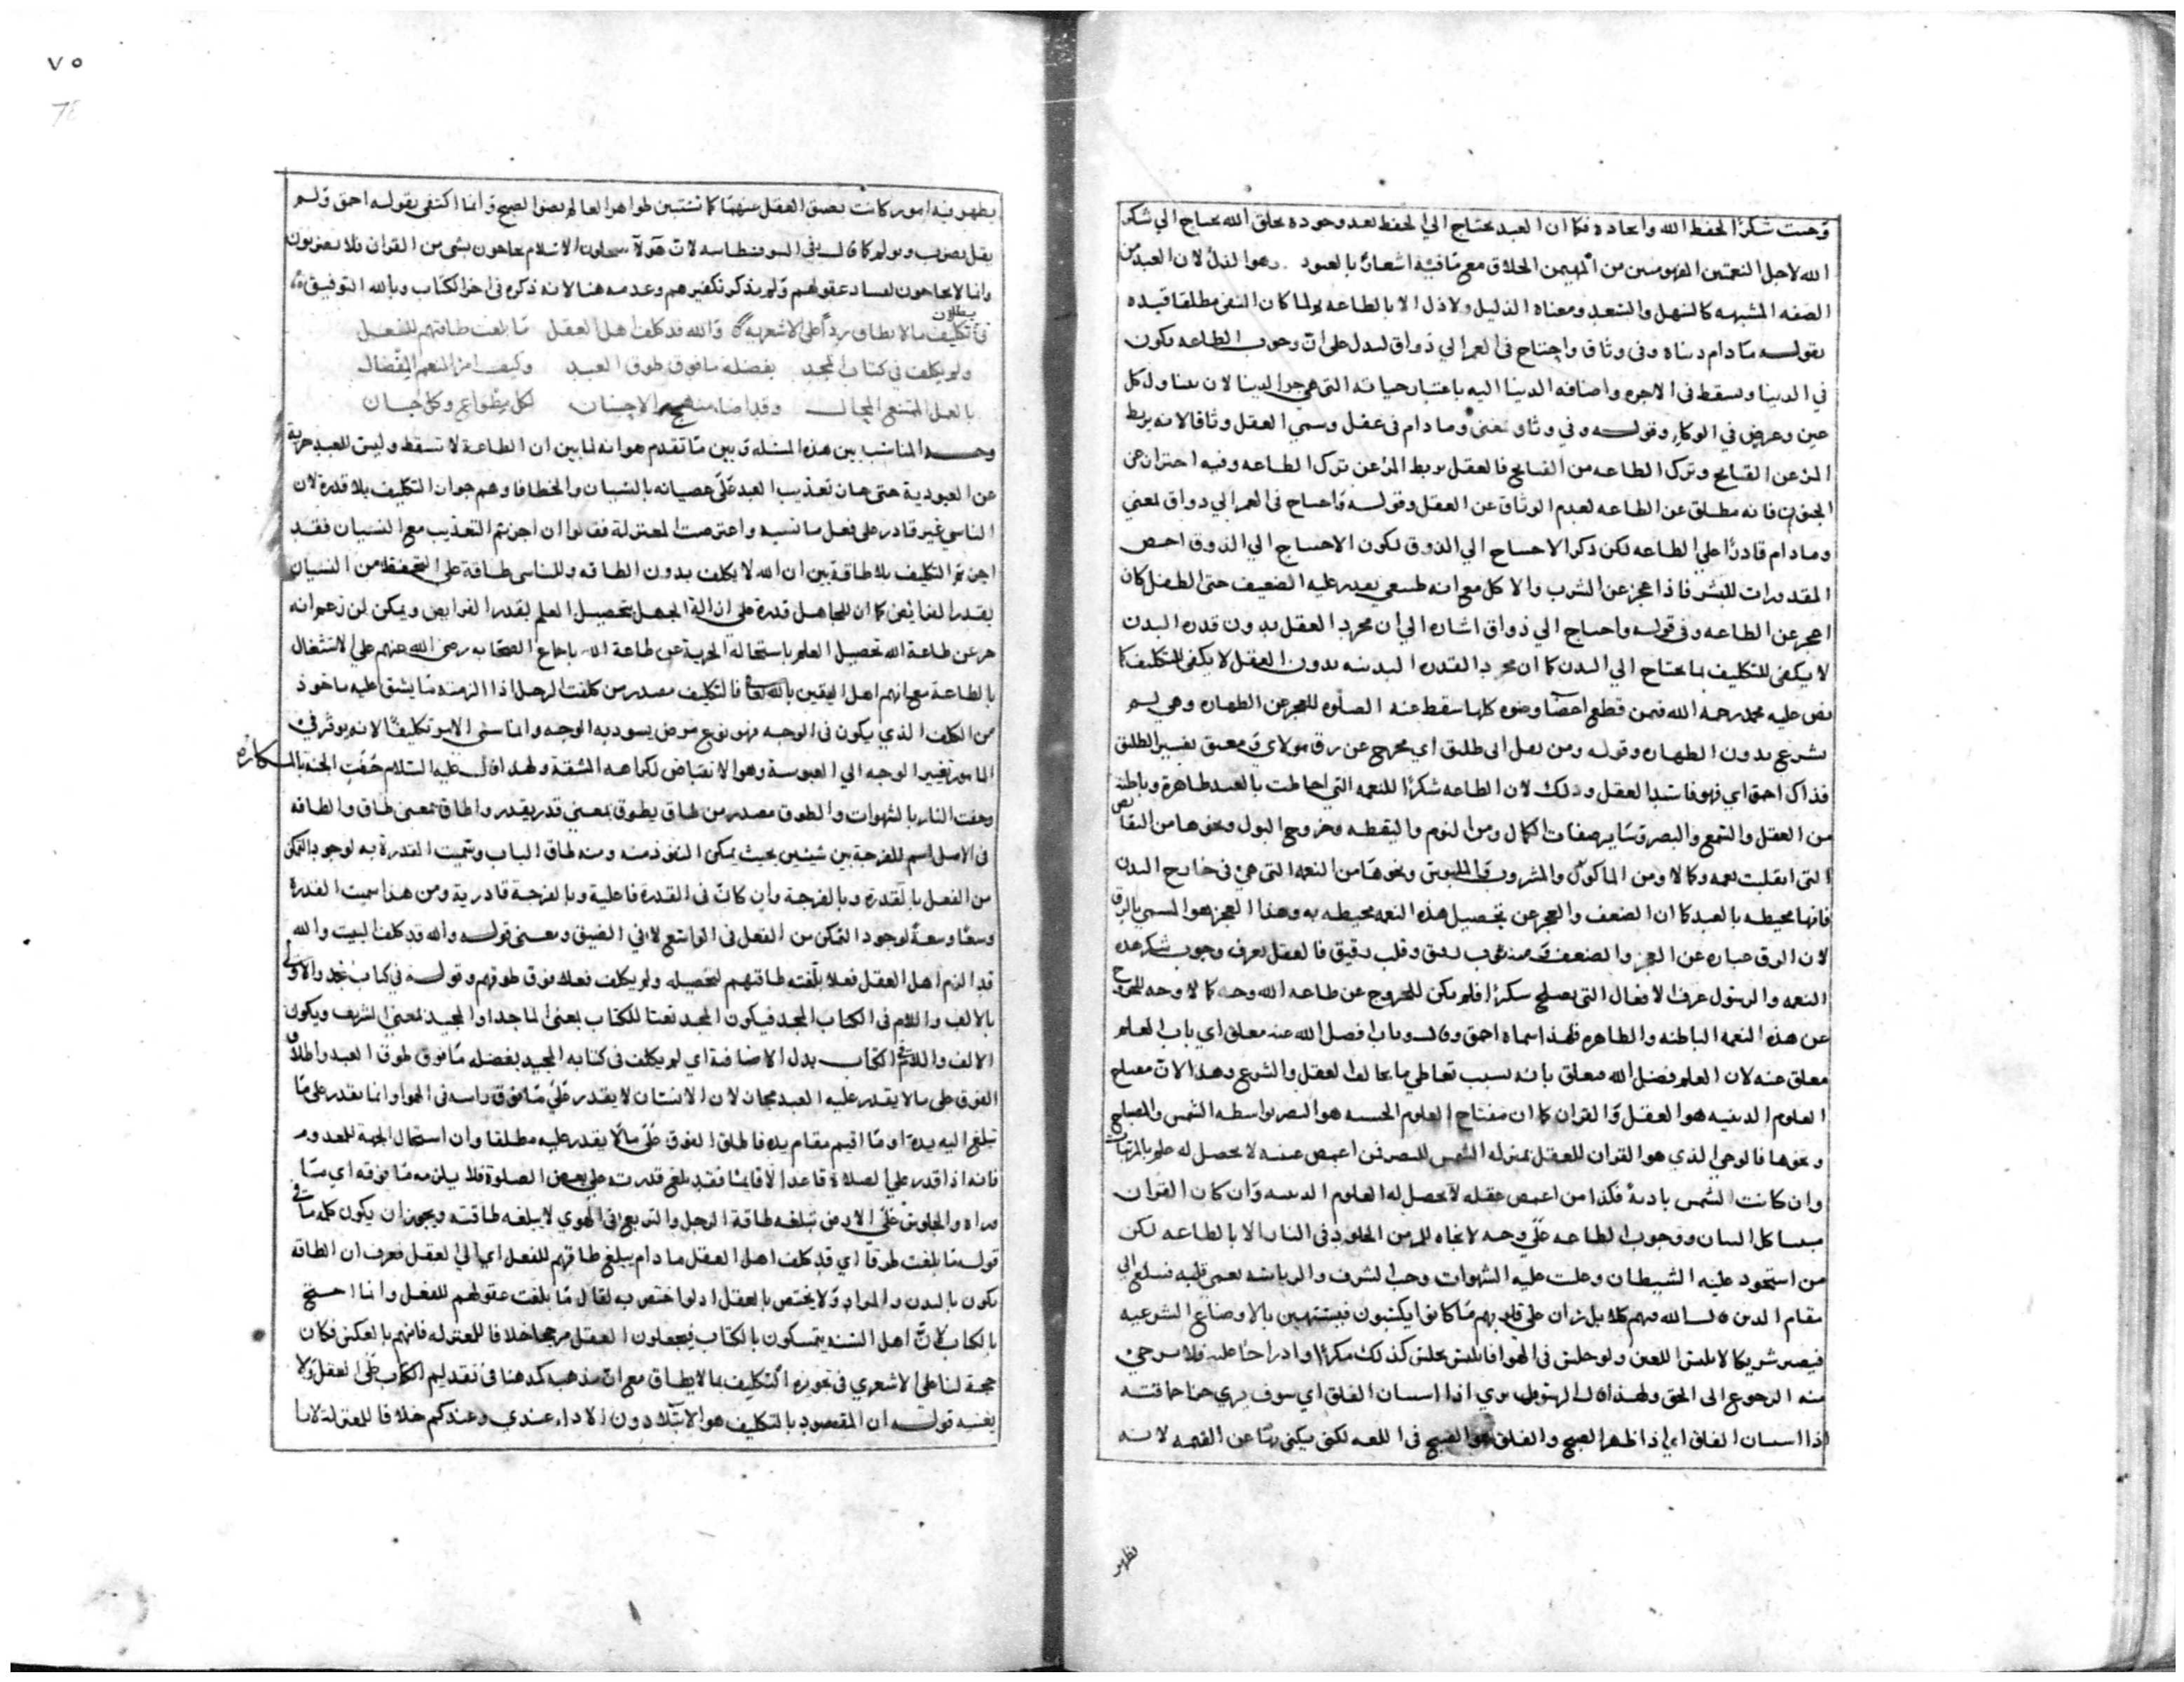 وجبت شكرًا لحفظ الله وايجاده فكما ان العبد يحتاج الي الحفظ بعد وجوده بخلق الله يحتاج الي شكر
الله لاجل النعمتين المفهومتين من المهيمن الخلاق مع ما فيه اشعار بالعبود وهو الذل لان العبد من
الصفه المشبهه كالسهل والصعب ومعناه الذليل ولا ذل الا بالطاعه ولما كان النفي مطلقا قيده
بقوله ما دام دنياه وفي وثاق واحتاج في العمر الي ذواق ليدل على ان وجوب الطاعه يكون
في الدنيا ويسقط في الاخره واضافه الدنيا اليه باعتبار حياته التي هي جزؤ الدنيا لان يتناول كل
عين وعرض في الوكا وقوله وفي وثاق يعني وما دام في عقل وسمي العقل وثاقا لانه يربط
المرء عن القبايح وترك الطاعه من القبايح فالعقل يربط المرء عن ترك الطاعه وفيه احتراز عن
المجنون فانه مطلق عن الطاعه لعدم الوثاق عن العقل وقوله واحتاج في العمر الي ذواق يعني
وما دام قادرًا علي الطاعه لكن ذكر الاحتياج الي الذوق لكون الاحتياج الي الذوق اخص
المقدورات للبشر فاذا عجز عن الشرب والاكل مع انه طبيعي يقدر عليه الضعيف حتى الطفل كان
اعجز عن الطاعه وفي قوله واحتاج الي ذواق اشاره الي ان مجرد العقل بدون قدره البدن
لا يكفي للتكليف بما يحتاج الي البدن كما ان مجرد القدره البدنيه بدون العقل لا يكفي للتكليف كما
نص عليه محمد رحمه الله فيمن قطع اعضا وضوه كلها سقط عنه الصلوه للعجز عن الطهاره وهي لم
تشرع بدون الطهاره وقوله ومن يقل اني طليق اي مخرج عن رق مولاي ومعتق تفسير الطليق
فذاك احمق اي فهو فاسد العقل وذلك لان الطاعه شكرًا للنعمه التي احاطت بالعبد ظاهرة وباطنة
من العقل والسمع والبصر وسائر صفات الكمال ومن النوم واليقظه وخروج البول ونحوها من النقايص
التي انقلبت نعمه وكمالا ومن الماكول والمشروب والملبوس ونحوها من النعمه التي هي في خارج البدن
فانها محيطه بالعبد كما ان الضعف والعجز عن تحصيل هذه النعمه محيطه به وهذا العجز هو المسمي بالرق
لان الرق عباره عن العجز والضعف ومنه ثوب رقيق وقلب رقيق فالعقل يعرف وجوب شكر هذه
النعمه والرسول عرف الافعال التي تصلح شكرًا فلم يكن للخروج عن طاعه الله وجه كما لا وجه للخروج
عن هذه النعمه الباطنه والظاهره فلهذا سماه احمق وقوله وباب فضل الله عنه مغلق اي باب العلم
مغلق عنه لان العلم فضل الله مغلق بانه بسبب تعاطي ما يخالف العقل والشرع وهذا لان مفتاح
العلوم الدينيه هو العقل والقران كما ان مفتاح العلوم الحسيه هو البصر بواسطه الشمس والمصباح
ونحوها فالوحي الذي هو القران للعقل بمنزله الشمس للبصر فمن اغمض عينه لا يحصل له علم بالمرئيات
وان كانت الشمس باديه فكذا من اغمض عقله لا تحصل له العلوم الدينيه وان كان القران
مبينا كل البيان ووجوب الطاعه على وجه لا نجاه للمرء من الخلود في النار الا بالطاعه لكن
من استحوذ عليه الشيطان وغلبت عليه الشهوات وحب الشرف والرياسه يعمى قلبه فيبلغ الي
مقام الذين قال الله فيهم كلا بل ران على قلوبهم ما كانوا يكسبون فيستهين بالاوضاع الشرعيه
فيصير شريكا لابليس اللعين ولو جلس في الهوا فابليس يجلس كذلك مكرًا واستدراجا عليه فلا يرجى
منه الرجوع الى الحق ولهذا قال الهتوف يري اذا استبان الفلق اي سوف يري حقا حماقته
اذا استبان الفلق اي اذا ظهر الصبح والفلق هو الصبح في اللغه لكن يكنى بها عن القيمه لانه
تظهر
٧٥
يظهر فيه امور كانت بعيق العقل عنها كما تستبين ظواهر العالم بضوا لصبح وانما اكتفى بقوله احمق ولم
يقل يضرب ويولم كما قال في السوفسطاييه لان هولاء يتحلون الاسلام يحاجون بشي من القران فلا يضربون
وانما لا يحاجون لفساد عقولهم ولم يذكر تكفيرهم وعدمه هنا لانه ذكره في اخر الكتاب وبالله التوفيق
في بطلان تكليف ما لا يطاق ردًا على الاشعريه والله قد كلف اهل العقل ما بلغت طاقتهم للفعل
ولم يكلف في كتاب المجد بفضله ما فوق طوق العبد وكيف امر المنعم المفضال
بالعمل الممتنع المحال وقد اضا منهج الاحسان لكل مطواع وكل جان
وجه المناسب بين هذه المسئله وبين ما تقدم هو انه لما بين ان الطاعة لا تسقط وليس للعبد حرية
عن العبودية حتى جاز تعذيب العبد على عصيانه بالنسيان والخطا فاوهم جواز التكليف بلا قدرة لان
الناسي غير قادر على فعل ما نسيه واعترضت المعتزلة فقالوا ان اجزتم التعذيب مع النسيان فقد
اجزتم التكليف بلا طاقة بين ان الله لا يكلف بدون الطاقه وللناسي طاقة على التحفظ من النسيان
بقدر الفايض كما ان للجاهل قدرة على ازالة الجهل بتحصيل العلم بقدر الفرايض ويمكن لمن زعم انه
حر عن طاعة الله تحصيل العلم باستحالة الحرية عن طاعة الله باجماع الصحابه رضي الله عنهم على الاشتغال
بالطاعة مع انهم اهل اليقين بالله تعالى فالتكليف مصدر من كلفت الرجل اذا الزمته ما يشق عليه ماخوذ
من الكلف الذي يكون في الوجه فهو نوع مرض يسود به الوجه وانما سمى الامر تكليفًا لانه يوثر في
المامور تغيير الوجه الي العبوسة وهو الانقباض لكراهه المشقة ولهذا قال عليه السلام حُفّت الجنه بالمكاره
وحفت النار بالشهوات والطوق مصدر من طاق يطوق بمعني قدر يقدر واطاق بمعنى طاق والطاقه
في الاصل اسم للفرجة بين شيئين بحيث يمكن النفوذ منه ومنه طاق الباب وسميت القدرة به لوجود التمكن
من الفعل بالقدرة وبالفرجة وان كان في القدرة فاعلية وبالفرجة قادرية ومن هذا سميت القدرة
وسعًا وسعةً لوجود التمكن من الفعل في الواسع لا في الضيق ومعنى قوله والله قد كلف البيت والله
قد الزم اهل العقل فعلا بلغته طاقتهم لتحصيله ولم يكلف فعلا فوق طوقهم وقوله في كتاب مجد والاولى
بالالف واللام في الكتاب المجد فيكون المجد نعتا للكتاب بمعنى الماجد او المجيد بمعني الشريف ويكون
الالف واللام في الكتاب بدل الاضافة اي لم يكلف في كتابه المجيد بفضله ما فوق طوق العبد واطلاق
الفوق على ما لا يقدر عليه العبد مجاز لان الانسان لا يقدر على ما فوق راسه في الهوا وانما يقدر على ما
تبلغ اليه يده او ما اقيم مقام يده فاطلق الفوق على ما لا يقدر عليه مطلقا وان استحال الجهة للمعدوم
فانه اذا قدر علي الصلاة قاعدا لا قايما فقد بلغ قدرته على بعض الصلوة فلا يلزمه ما فوقه اي ما
وراه والجلوس على الارض تبلغه طاقة الرجل والتربع في الهوي لا يبلغه طاقته ويجوز ان يكون كلمه ما في
قوله ما بلغت ظرفا اي قد كلف اهل العقل ما دام يبلغ طاقتهم للفعل اي الي العقل فعرف ان الطاقه
تكون بالبدن والمراد ولا يختص بالعقل اذ لو اختص به لقال ما بلغت عقولهم للفعل وانما احتج
بالكتاب لان اهل السنه يتمسكون بالكتاب فيجعلون العقل مرجحا خلافا للمعتزله فانهم بالعكس فكان
حجة لنا على الاشعري في تجويزه التكليف بما لا يطاق مع ان مذهبه كمذهبنا في تقديم الكتاب على العقل ولا
يغنيه قوله ان المقصود بالتكليف هو الابتلا دون الاداء عندي وعندكم خلافا للمعتزلة لانا